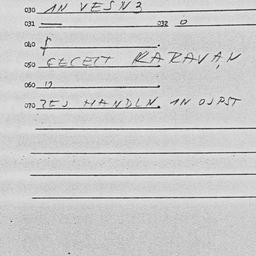 030 1N VESN3
031 — 032 0
040 f
050 GECETT KARAVAN
060 17
070 ZES HANDLN 1N OJPST